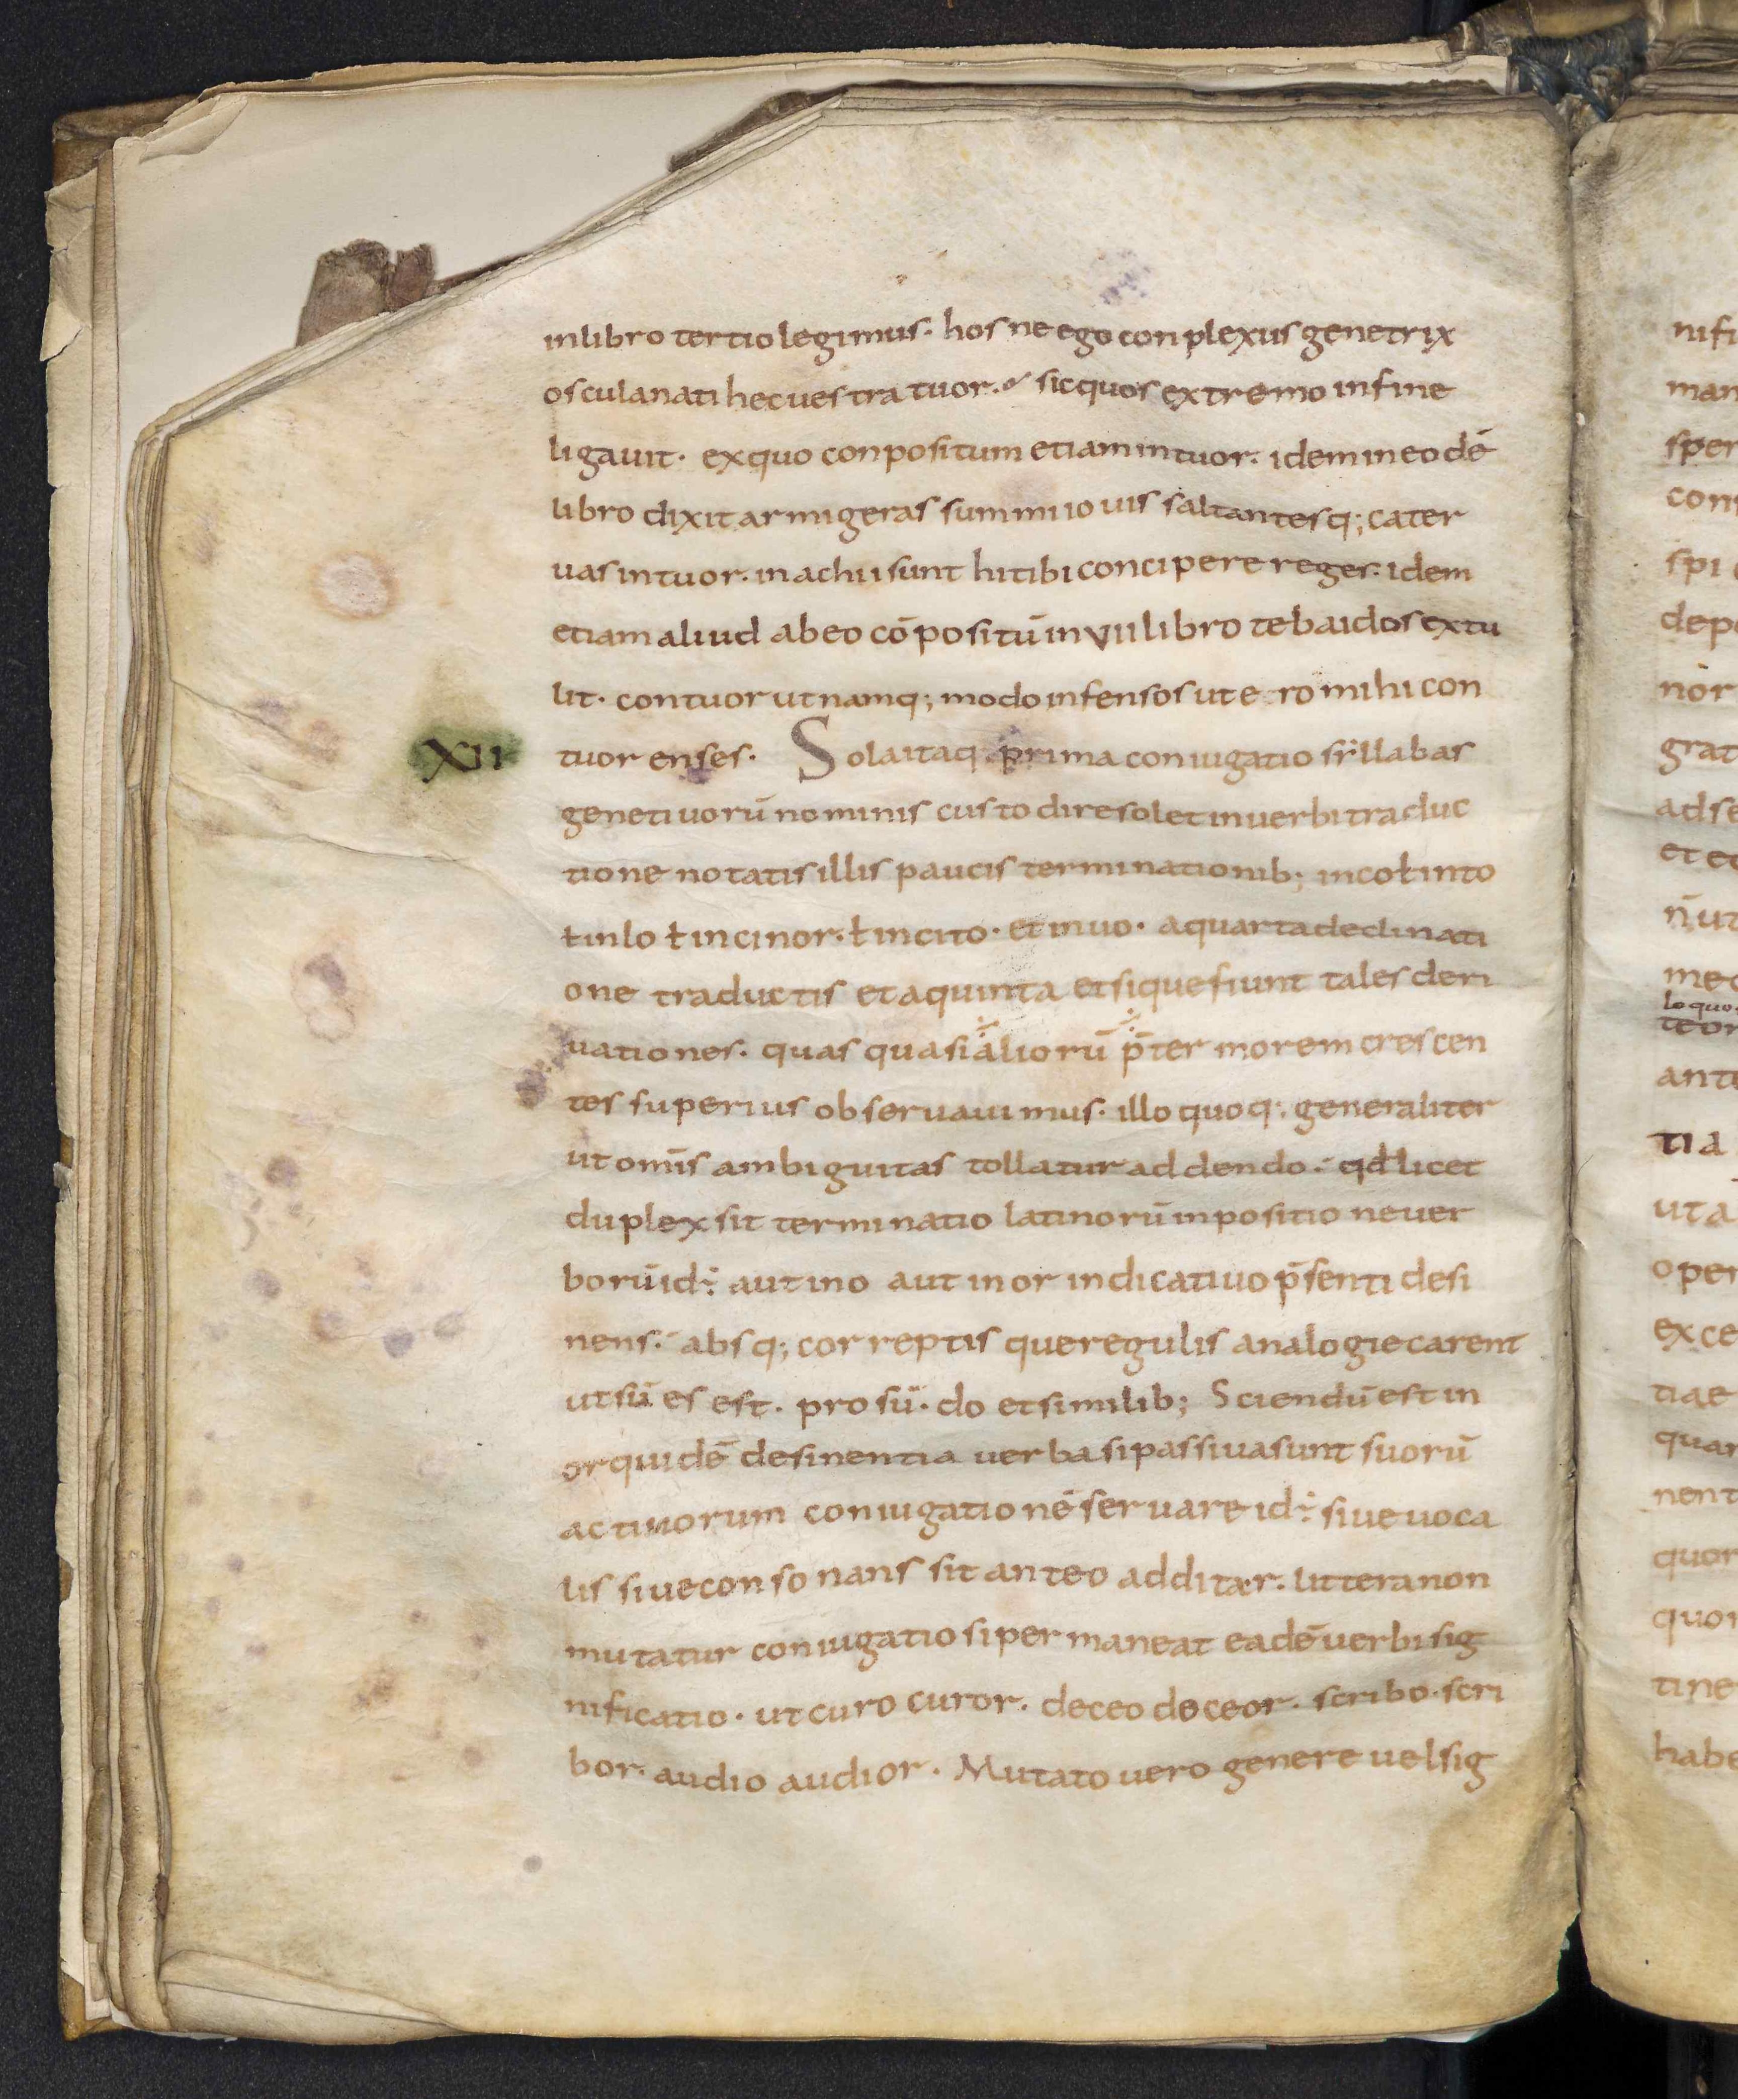 in libro tertio legimus. hos ne ego conplexus genetrix
oscula nati hec uestra tuor. sic quos extremo in fine
ligauit. ex quo conpositum etiam intuor. idem in eodē
libro dixit armigeras summi iouis saltantesq; cater
uas intuor. inachii sunt hi tibi concipere reges. idem
etiam aliud ab eo cōpositū in VII libro tebaidos extu
lit. contuor ut namq; modo infensos utero mihi con
XII tuor enses. Sola itaq. prima coniugatio syllabas
genetiuorū nominis custodire solet in uerbi traduc
tione notatis illis paucis terminationib; in co ł in to
ł in lo ł in cinor. ł in cito. et in uo. a quarta declinati
one traductis et a quinta et si que fiunt tales deri
uationes. quas quasi aliorū p̄ter morem crescen
tes superius obseruauimus. illo quoq; generaliter
ut om̄is ambiguitas tollatur addendo. qđ licet
duplex sit terminatio latinorū in positione uer
borū id÷ aut in o aut in or indicatiuo p̄senti desi
nens. absq; correptis que regulis analogie carent
ut sū es est. pro sū. do et similib; Sciendū est in
or quidē desinentia uerba si passiua sunt suorū
actiuorum coniugationē seruare id÷ siue uoca
lis siue consonans sit ante o additær. littera non
mutatur coniugatio si permaneat eadē uerbi sig
nificatio. ut curo curor. doceo doceor. scribo. scri
bor. audio audior. Mutato uero genere uel sig
nifi
man
sper
con
spi
dep
nor
grat
ad se
et
n̄ ut
me
lo quo
teor
ante
tia
ut a
oper
exce
tiae
quar
nent
quor
quor
tine
habe